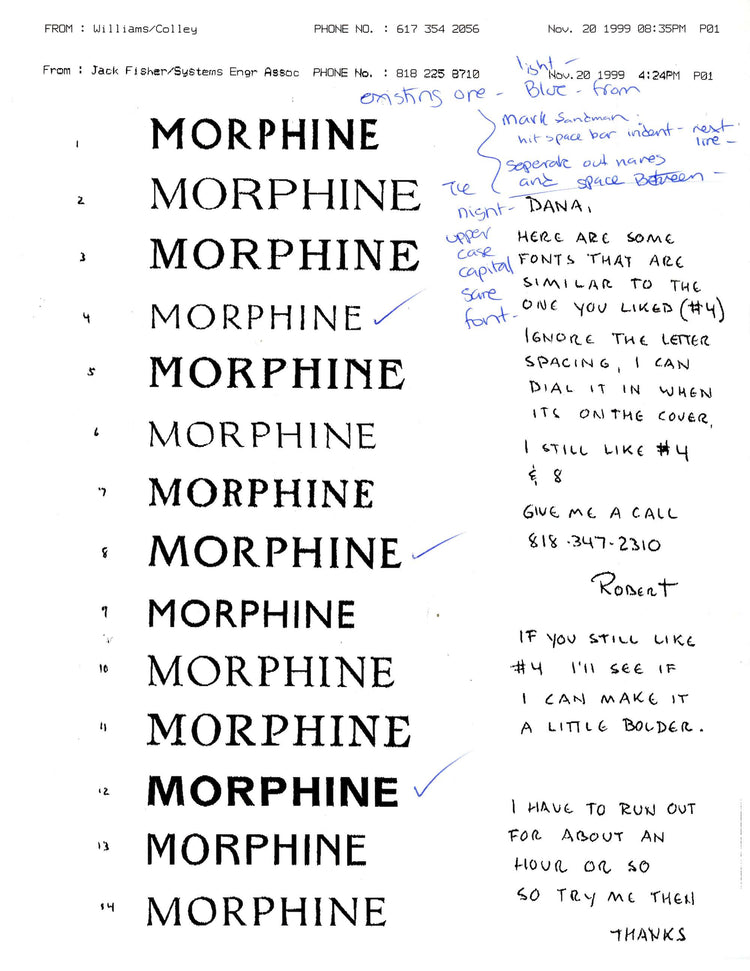 FROM : Williams/Colley PHONE NO. : 617 354 2056 Nov. 20 1999 08:35PM P01
From : Jack Fisher/Systems Engr Assoc PHONE No. : 818 225 8710 Nov.20 1999 4:24PM P01
light -
existing one - Blue - from
mark Sandman.
hit space bar indent - next
line -
seperate out names
and space Between -
The
night -
upper
case
capital
same
font -
1 MORPHINE
2 MORPHINE
3 MORPHINE
4 MORPHINE
5 MORPHINE
6 MORPHINE
7 MORPHINE
8 MORPHINE
9 MORPHINE
10 MORPHINE
11 MORPHINE
12 MORPHINE
13 MORPHINE
14 MORPHINE
DANA,
HERE ARE SOME
FONTS THAT ARE
SIMILAR TO THE
ONE YOU LIKED (#4)
IGNORE THE LETTER
SPACING, I CAN
DIAL IT IN WHEN
ITS ON THE COVER,
I STILL LIKE #4
& 8
GIVE ME A CALL
818-347-2310
ROBERT
IF YOU STILL LIKE
#4 I'll SEE IF
I CAN MAKE IT
A LITTLE BOLDER.
I HAVE TO RUN OUT
FOR ABOUT AN
HOUR OR SO
SO TRY ME THEN
THANKS